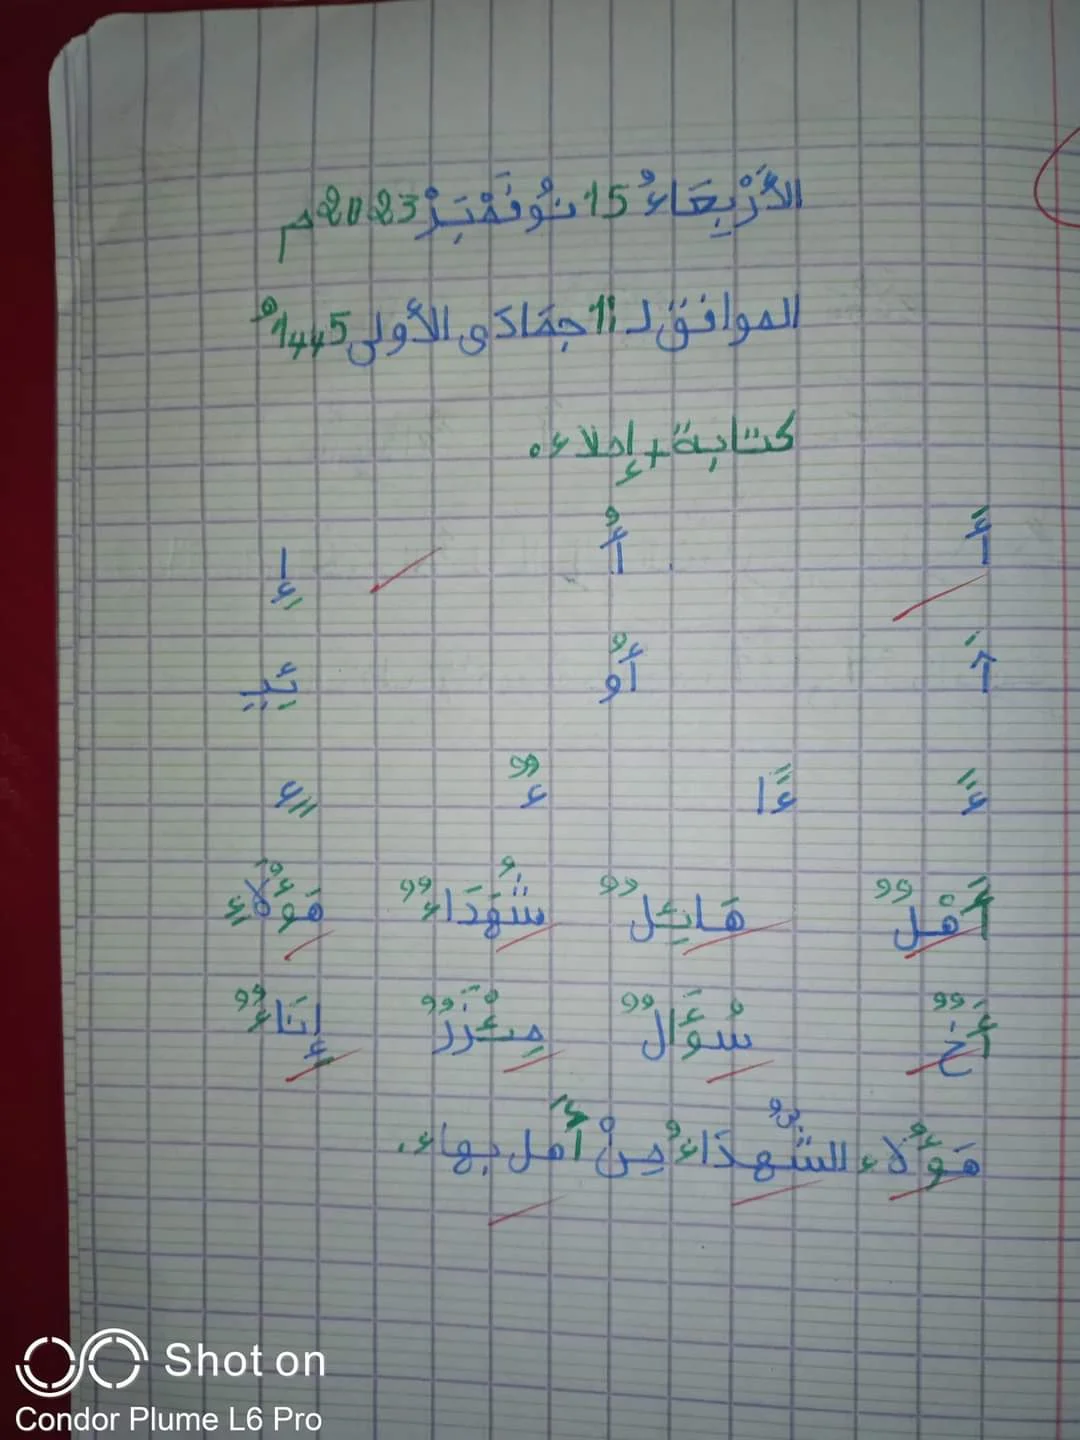 الأَرْبِعَاءُ 15 نُوفَمْبَرْ 2023م
الموافق لـ 11 جمَادَى الأولى 1445ه
كتابة + إملاء.
أَ أُ إِ
آ أُو ئِيـ
ءً ءًا ءٌ ءٍ
أَهْلٌ هَائِلٌ شُهَدَاءٌ هَؤُلَاءِ
أَخٌ سُؤَالٌ مِئْزَرٌ إِنَاءٌ
هَؤُلَاء الشُّهدَاءُ مِنْ أَهل بهاء.
Shot on
Condor Plume L6 Pro